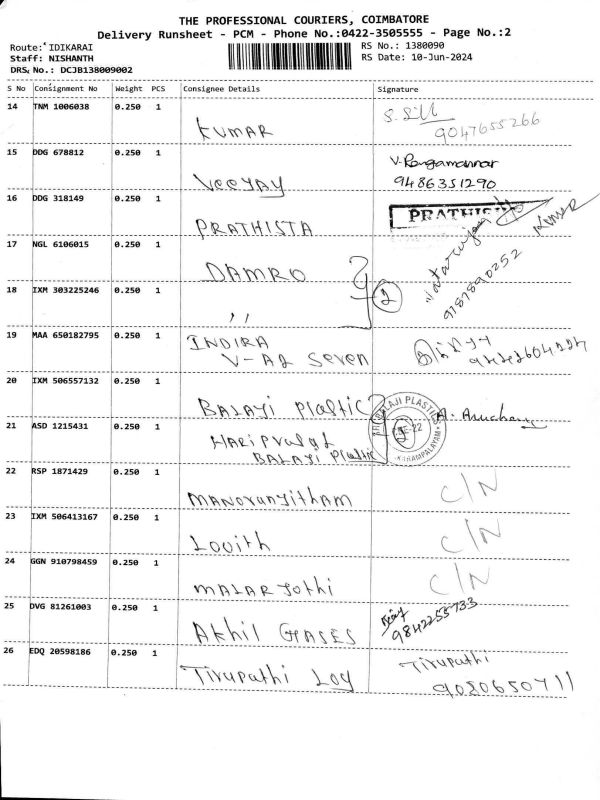 THE PROFESSIONAL COURIERS, COIMBATORE
Delivery Runsheet - PCM - Phone No.:0422-3505555 - Page No.:2
Route: IDIKARAI
RS No.: 1380090
Staff: NISHANTH
RS Date: 10-Jun-2024
DRS, No.: DCJB138009002
S No Consignment No Weight PCS Consignee Details Signature
14 TNM 1006038 0.250 1
KUMAR
9047655266
15 DDG 678812 0.250 1
VEEYAY
V. Rengamannar
9486351290
16 DDG 318149 0.250 1
PRATHISTA
PRATHIS
17 NGL 6106015 0.250 1
DAMRO
9787890252
18 IXM 303225246 0.250 1
,, 2
19 MAA 650182795 0.250 1
INDIRA
V-A2 Seven
20 IXM 506557132 0.250 1
BALAYI Plaltic
BALAJI PLASTICS
KARAMPALAYAM
21 ASD 1215431 0.250 1
BALAJI Plastic
22 RSP 1871429 0.250 1
MANOranjitham
C/N
23 IXM 506413167 0.250 1
Lovith
C/N
24 GGN 910798459 0.250 1
MALAR Jothi
C/N
25 DVG 81261003 0.250 1
Akhil GASES
9842255733
26 EDQ 20598186 0.250 1
Tirupathi Log
Tirupathi
9080650711